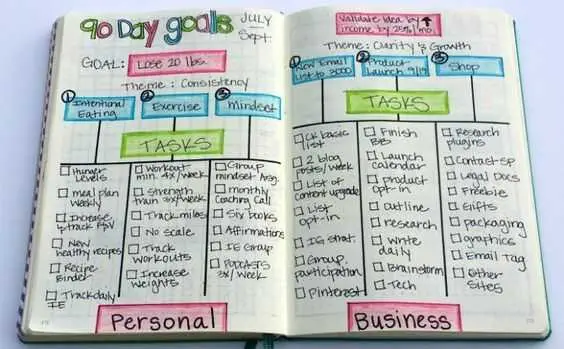 90 Day goals
JULY
Sept.
GOAL: Lose 20 lbs.
Theme: Consistency
1 Intentional
Eating
2 Exercise
3 mindset
TASKS
Hunger
Levels
meal plan
weekly
Increase
& track
New
healthy recipes
Recipe
Binder
Track daily
IE
Workout
min. 4x/week
Strength
train 3x/week
Track miles
No scale
Track
workouts
Increase
weights
Group
mindset
monthly
Coaching Call
Six books
Affirmations
IE Group
PODCASTS
3x/week
Personal
Validate idea by
income by 25%/mo.
Theme: Clarity & Growth
1 Grow Email
List to 2000
2 Product
Launch 9/19
3 Shop
TASKS
CK basic
list
2 blog
posts/week
List of
content upgrade
List
opt-in
IG strat.
Group
participation
Pinterest
Finish
Launch
calendar
product
opt-in
outline
research
write
daily
Brainstorm
Tech
Research
plugins
Contract-SP
Legal Docs
Freebie
Gifts
packaging
graphics
Email Tag
Other
Sites
Business